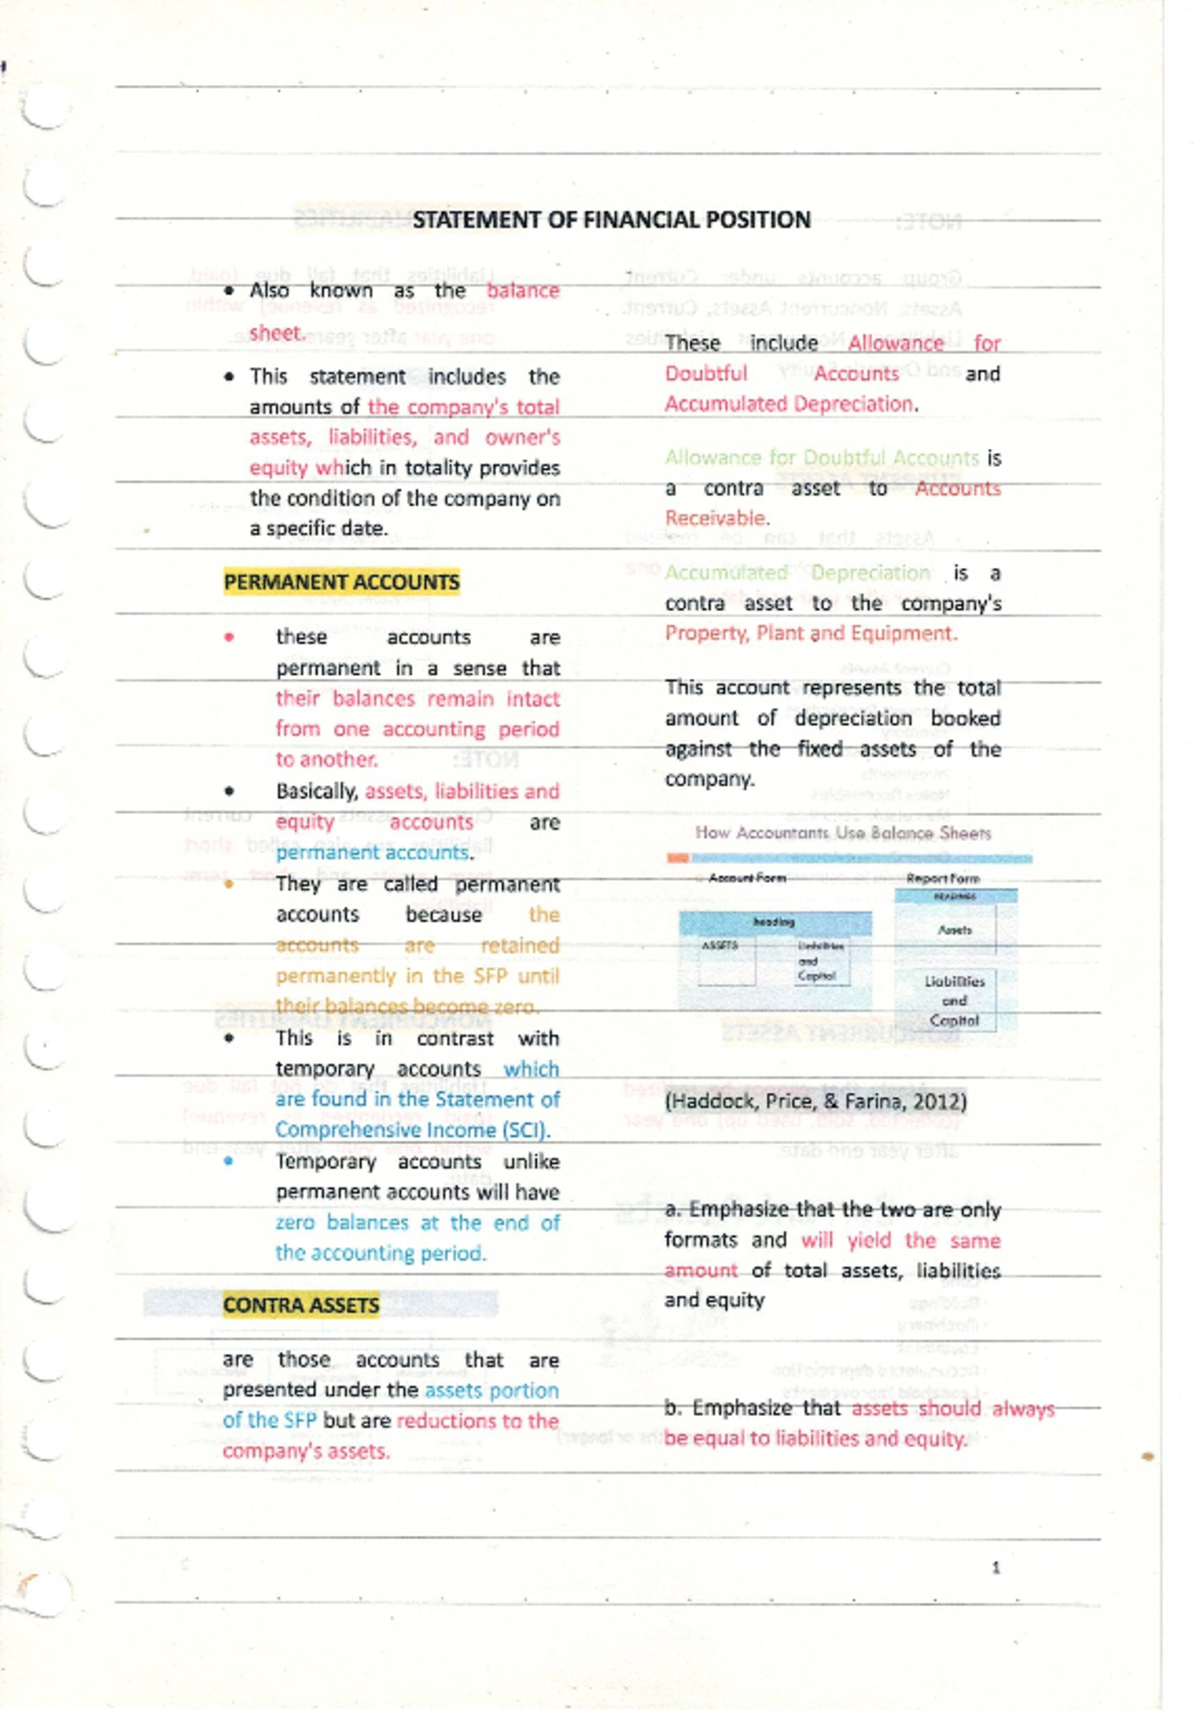 STATEMENT OF FINANCIAL POSITION
• Also known as the balance
sheet.
• This statement includes the
amounts of the company's total
assets, liabilities, and owner's
equity which in totality provides
the condition of the company on
a specific date.
PERMANENT ACCOUNTS
• these accounts are
permanent in a sense that
their balances remain intact
from one accounting period
to another.
• Basically, assets, liabilities and
equity accounts are
permanent accounts.
• They are called permanent
accounts because the
accounts are retained
permanently in the SFP until
their balances become zero.
• This is in contrast with
temporary accounts which
are found in the Statement of
Comprehensive Income (SCI).
• Temporary accounts unlike
permanent accounts will have
zero balances at the end of
the accounting period.
CONTRA ASSETS
are those accounts that are
presented under the assets portion
of the SFP but are reductions to the
company's assets.
These include Allowance for
Doubtful Accounts and
Accumulated Depreciation.
Allowance for Doubtful Accounts is
a contra asset to Accounts
Receivable.
Accumulated Depreciation is a
contra asset to the company's
Property, Plant and Equipment.
This account represents the total
amount of depreciation booked
against the fixed assets of the
company.
How Accountants Use Balance Sheets
Account Form
heading
ASSETS
Liabilities
and
Capital
Report Form
HEADINGS
Assets
Liabilities
and
Capital
(Haddock, Price, & Farina, 2012)
a. Emphasize that the two are only
formats and will yield the same
amount of total assets, liabilities
and equity
b. Emphasize that assets should always
be equal to liabilities and equity.
1